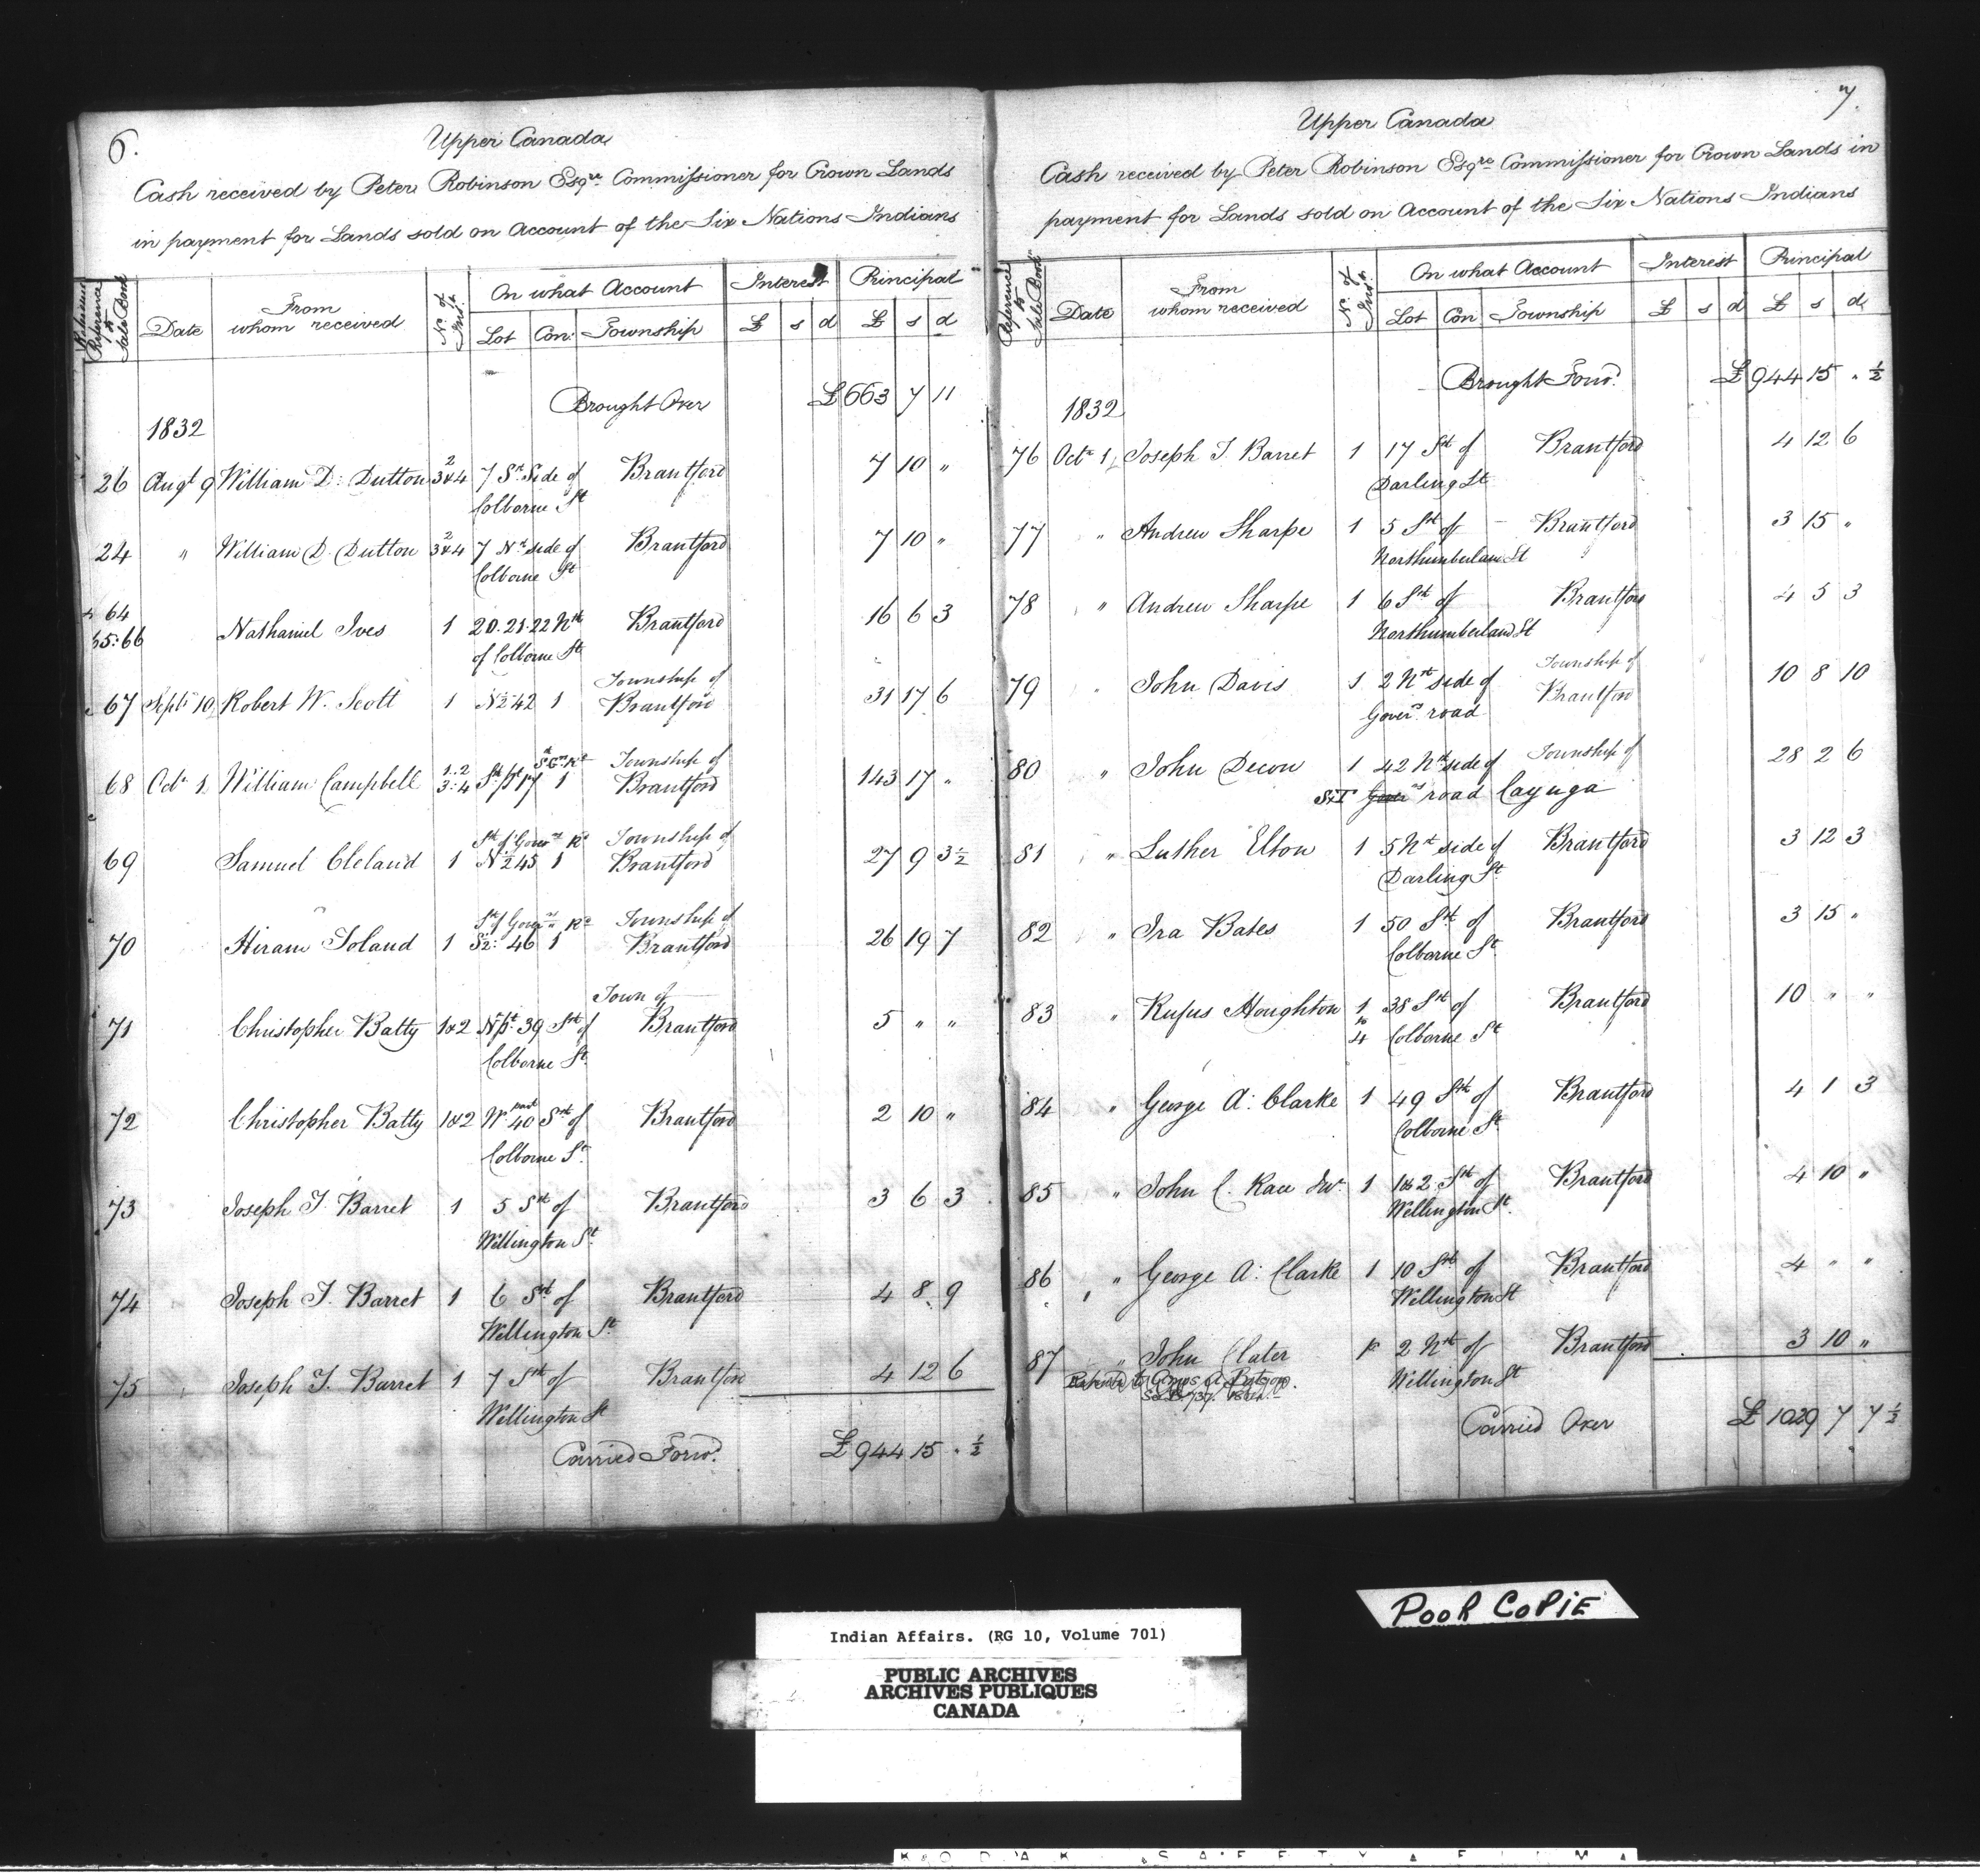 6.
Upper Canada
Cash received by Peter Robinson Esqre. Commissioner for Crown Lands
in payment for Lands sold on Account of the Six Nations Indians
Reference to Sale Book | Date | From whom received | No. of Inst. | On what Account | Interest | Principal
Lot | Con: | Township | £ | s | d | £ | s | d
Brought Over £663 7 11
1832
26 Augt 9 William D: Dutton 2 3&4 7 Sn. Side of Brantford 7 10 "
Colborne St
24 " William D. Dutton 2 3&4 7 Nth side of Brantford 7 10 "
Colborne St
64
65:66 Nathaniel Ives 1 20.21.22 Nth Brantford 16 6 3
of Colborne St
Township of
67 Septr 10 Robert W. Scott 1 N½ 42 1 Brantford 31 17 6
Township of
68 Octr 1 William Campbell 1:2 3:4 St. pt 17 1 Brantford 143 17 "
Sth of Govrs Rd Township of
69 Samuel Cleland 1 N½ 45 1 Brantford 27 9 3½
Sth of Govrs Rd Township of
70 Hiram Toland 1 S½: 46 1 Brantford 26 19 7
Town of
71 Christopher Batty 1&2 N. pt. 39 Sth of Brantford 5 " "
Colborne St.
72 Christopher Batty 1&2 W. part 40 Sth of Brantford 2 10 "
Colborne St.
73 Joseph T. Barret 1 5 Sth of Brantford 3 6 3
Wellington St.
74 Joseph T. Barret 1 6 Sth of Brantford 4 8 9
Wellington St.
75 Joseph T. Barret 1 7 Sth of Brantford 4 12 6
Wellington St
Carried Forwd. £944 15 " ½
7.
Upper Canada
Cash received by Peter Robinson Esqre Commissioner for Crown Lands in
payment for Lands sold on Account of the Six Nations Indians
Reference to Sale Book | Date | From whom received | No. of Inst. | On what Account | Interest | Principal
Lot | Con | Township | £ | s | d | £ | s | d
Brought Forwd. £944 15 " ½
1832
76 Octr 1 Joseph T Barret 1 17 Sth of Brantford 4 12 6
Darling St
77 " Andrew Sharpe 1 5 Sth of Brantford 3 15 "
Northumberland St
78 " Andrew Sharpe 1 6 Sth of Brantford 4 5 3
Northumberland St
Township of
79 " John Davis 1 2 Nth side of Brantford 10 8 10
Govers. road
Township of
80 " John Decou 1 42 Nth side of 28 2 6
road Cayuga
81 " Luther Elton 1 5 Nth side of Brantford 3 12 3
Darling St.
82 " Ira Bates 1 50 Sth of Brantford 3 15 "
Colborne St.
83 " Rufus Houghton 1 to 4 38 Sth of Brantford 10 " "
Colborne St
84 " George A: Clarke 1 49 Sth of Brantford 4 1 3
Colborne St.
85 " John C. Race Junr. 1 1&2 Sth of Brantford 4 10 "
Wellington St.
86 " George A: Clarke 1 10 Sth of Brantford 4 " "
Wellington St
87 " John Clater 2 Nth of Brantford 3 10 "
Wellington St
Carried Over £1029 7 7½
POOR COPIE
Indian Affairs. (RG 10, Volume 701)
PUBLIC ARCHIVES
ARCHIVES PUBLIQUES
CANADA
KODAK SAFETY FILM